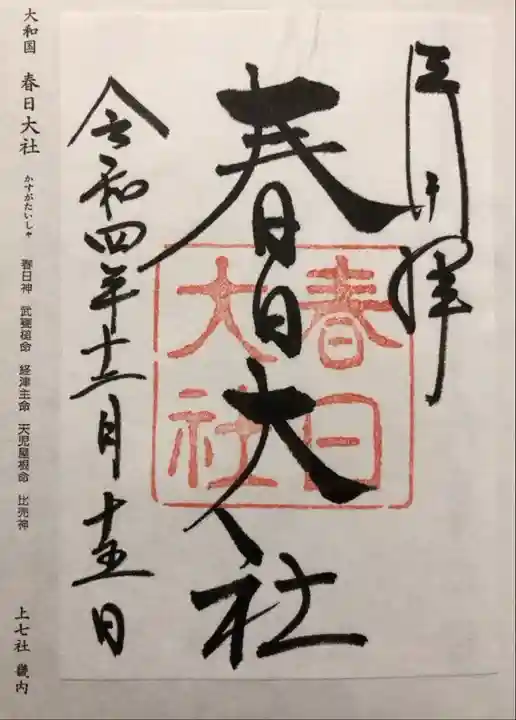 奉拝
春日大社
春日
大社
令和四年十二月十五日
大和国 春日大社 かすがたいしゃ 春日神 武甕槌命 経津主命 天児屋根命 比売神 上七社 畿内